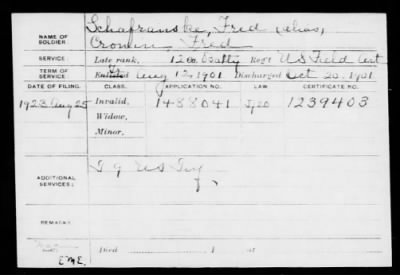 NAME OF SOLDIER: Schafranske, Fred (alias)
Cronin Fred
SERVICE: Late rank, 12 Co. Batty Reg't U S Field Art
TERM OF SERVICE: Enlisted Aug 12, 1901 Discharged Oct 20, 1901
DATE OF FILING. CLASS. APPLICATION NO. LAW. CERTIFICATE NO.
1923 Aug 25 Invalid, 1488041 1239403
Widow,
Minor,
ADDITIONAL SERVICES: U S
REMARKS:
Died , 1 , at